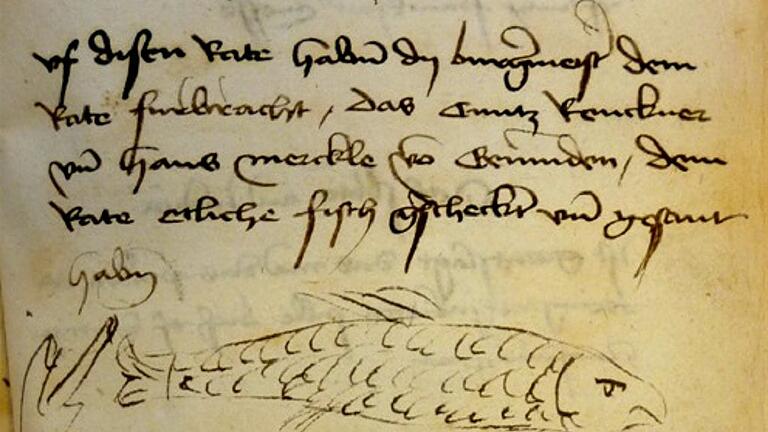 uf disen Rate habn̄ dy burg̃meist̃ dem
Rate furbracht, das Cuntz Reuckner
vn̄ Hans Merckle vō Gemunden, dem
Rate etliche fisch gescheckt vn̄ gesant
habn